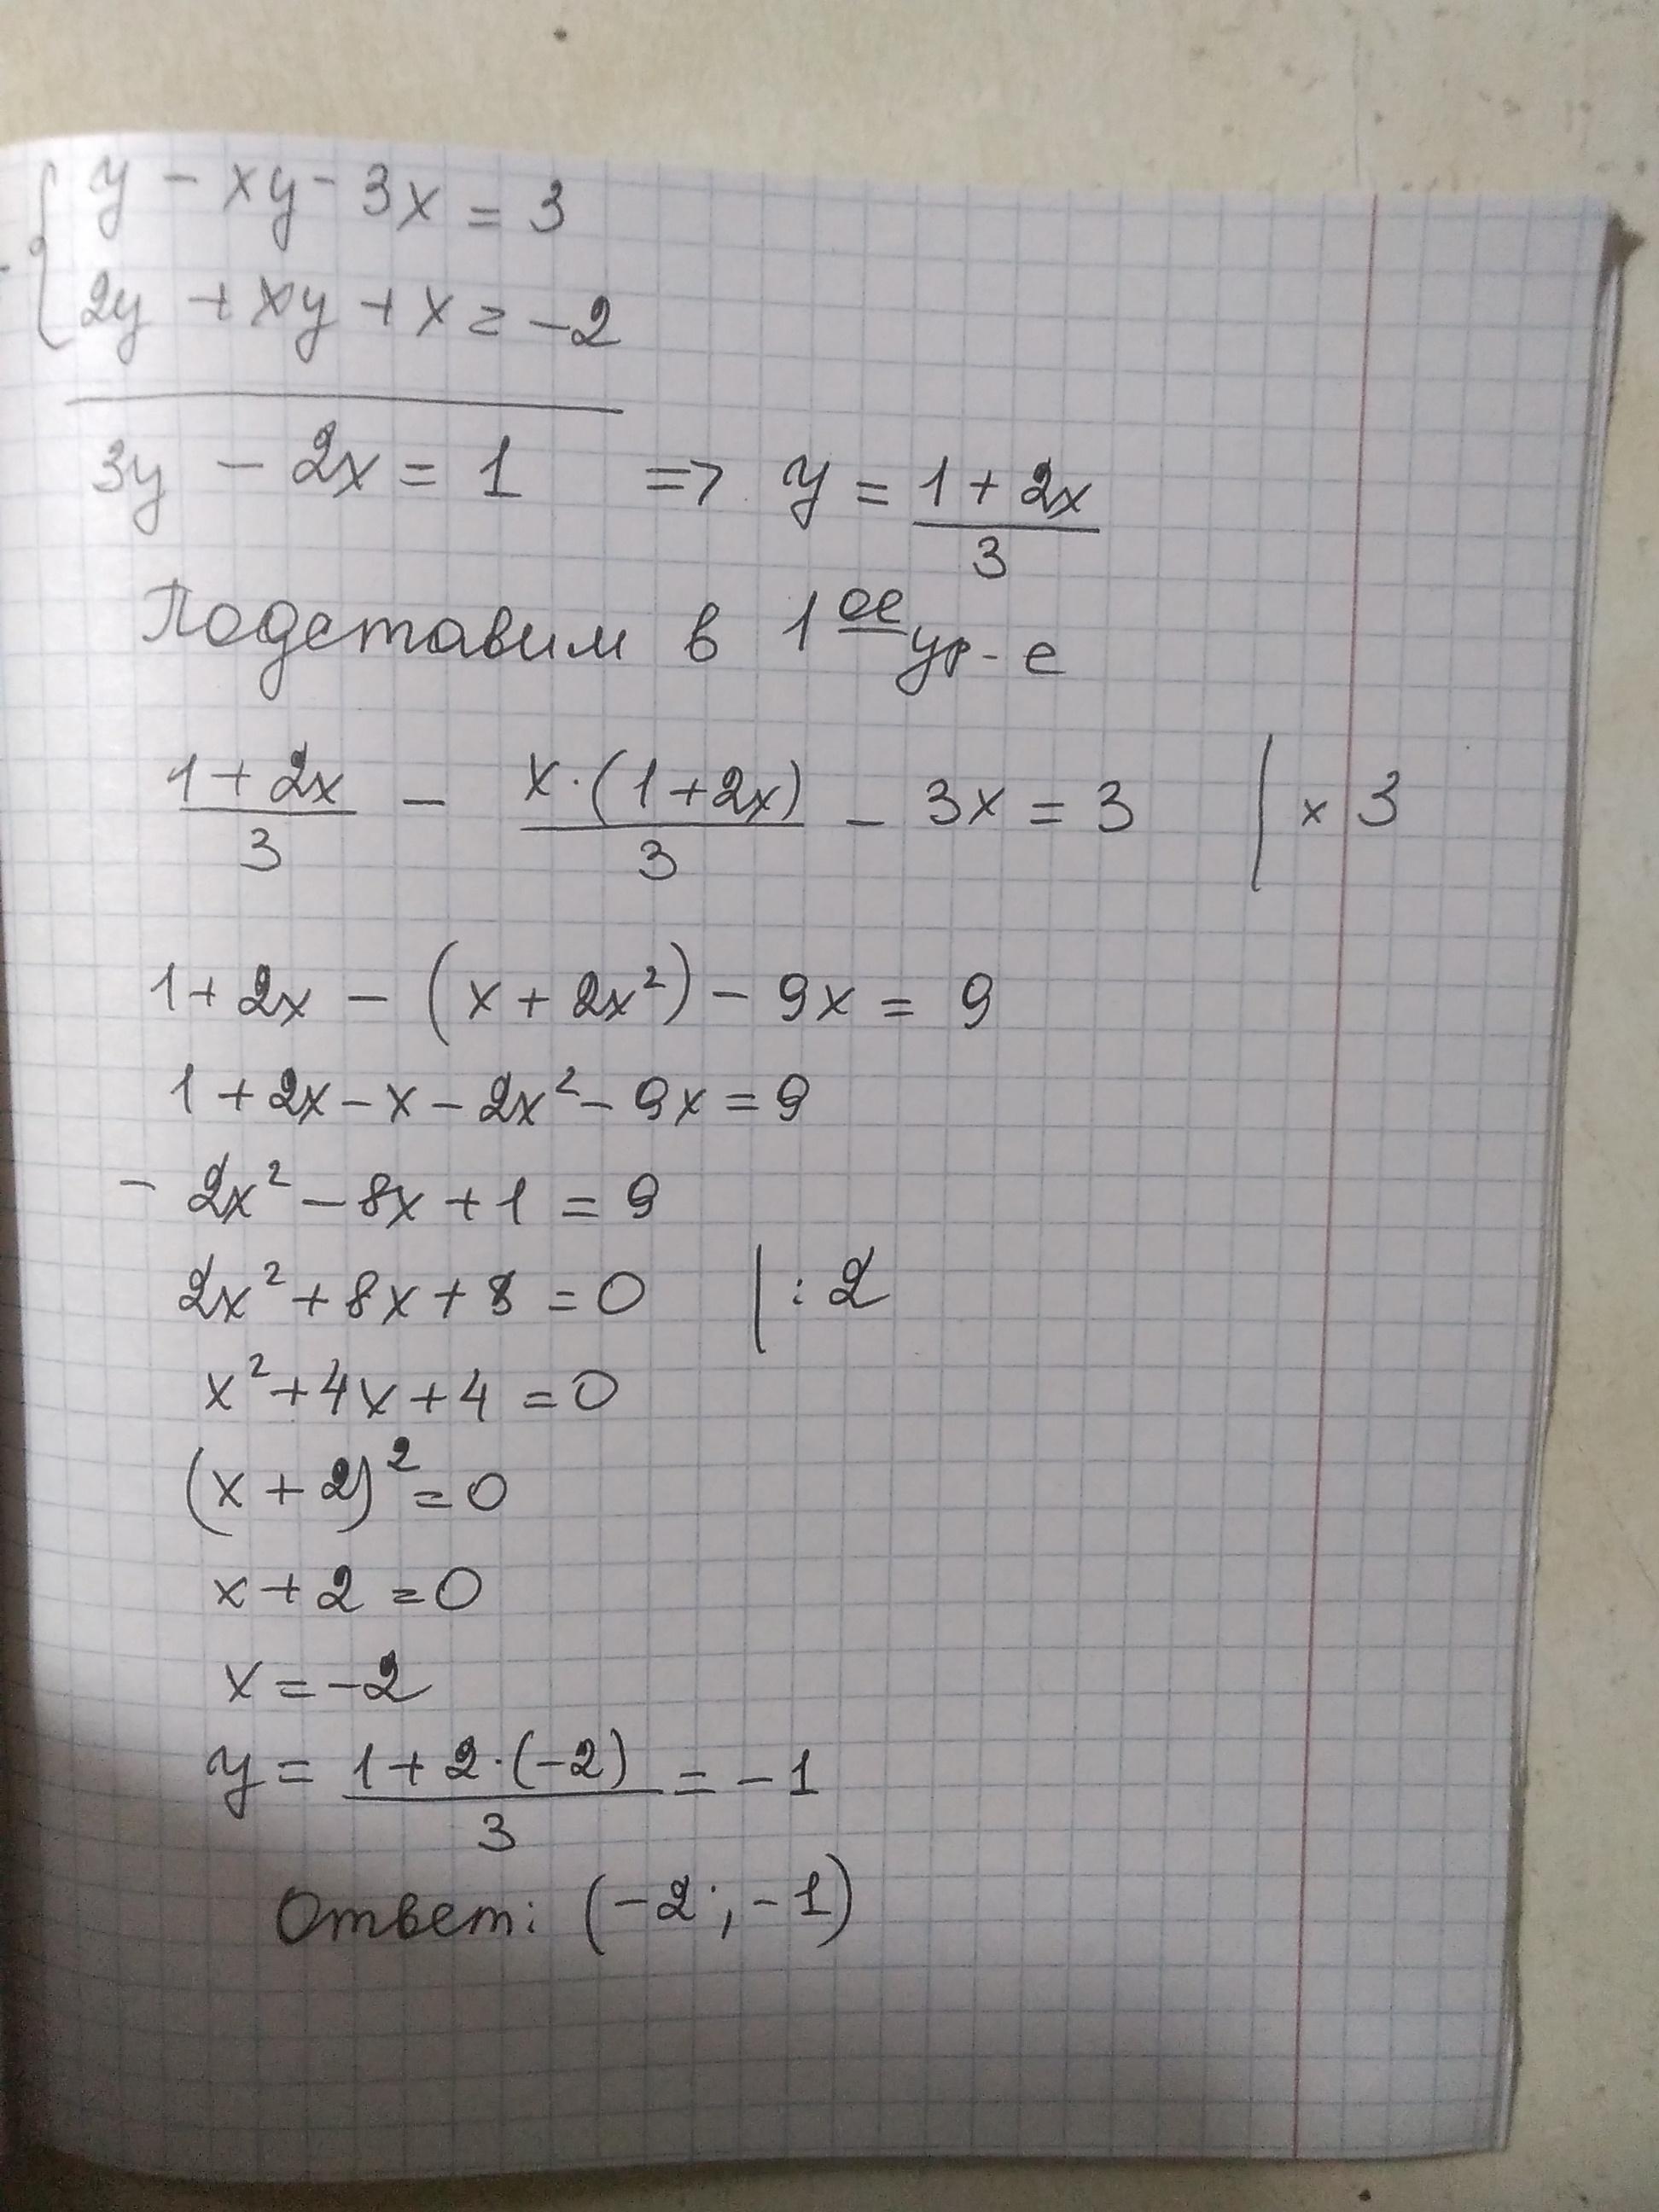 { y - xy - 3x = 3
2y + xy + x = -2
3y - 2x = 1 => y = (1 + 2x)/3
Подставим в 1 ое ур-е
(1 + 2x)/3 - (x·(1+2x))/3 - 3x = 3 | x 3
1 + 2x - (x + 2x²) - 9x = 9
1 + 2x - x - 2x² - 9x = 9
- 2x² - 8x + 1 = 9
2x² + 8x + 8 = 0 | : 2
x² + 4x + 4 = 0
(x + 2)² = 0
x + 2 = 0
x = -2
y = (1 + 2·(-2))/3 = -1
Ответ: (-2; -1)